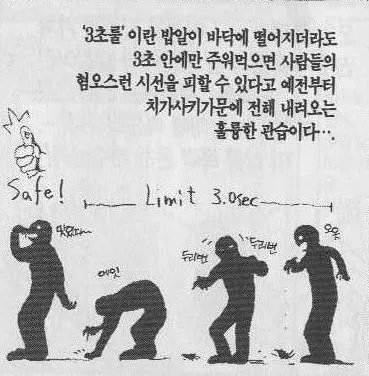 '3초룰' 이란 밥알이 바닥에 떨어지더라도
3초 안에만 주워먹으면 사람들의
혐오스런 시선을 피할 수 있다고 예전부터
치가사키가문에 전해 내려오는
훌륭한 관습이다….
Safe!
Limit 3.0sec
맛있다~
에잇
두리번
두리번
오옷